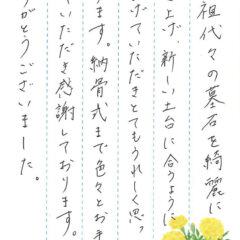 祖代々の墓石を綺麗に
上げ新しい土台に合うように
げていただきとてもうれしく思っ
ます。納骨式まで色々とお手
いただき感謝しております。
がとうございました。